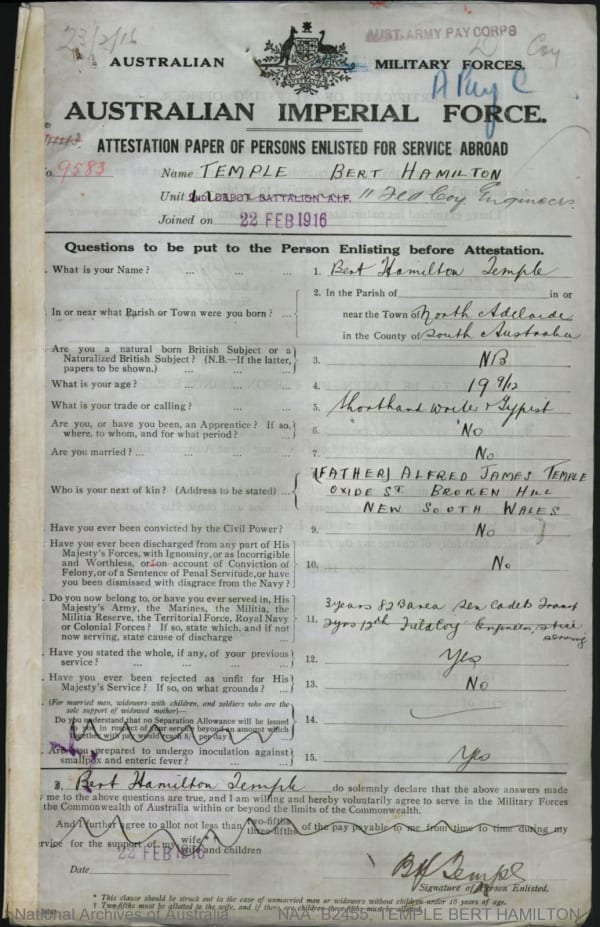 23/2/16
AUST. ARMY PAY CORPS
Coy
AUSTRALIAN MILITARY FORCES.
A Pay C
AUSTRALIAN IMPERIAL FORCE.
ATTESTATION PAPER OF PERSONS ENLISTED FOR SERVICE ABROAD
No. 9583 Name TEMPLE BERT HAMILTON
Unit 2ND DEPOT BATTALION A.I.F. 11 Fld Coy Engineers.
Joined on 22 FEB 1916
Questions to be put to the Person Enlisting before Attestation.
. What is your Name? ... ... ... 1. Bert Hamilton Temple
2. In the Parish of in or
. In or near what Parish or Town were you born? ... near the Town of North Adelaide
in the County of South Australia
. Are you a natural born British Subject or a
Naturalized British Subject? (N.B.—If the latter,
papers to be shown.) ... ... ... 3. NB
. What is your age? ... ... ... 4. 19 9/12
. What is your trade or calling? ... ... ... 5. Shorthand writer & Typist
. Are you, or have you been, an Apprentice? If so,
where, to whom, and for what period? ... 6. No
. Are you married? ... ... ... ... 7. No
(FATHER) ALFRED JAMES TEMPLE
. Who is your next of kin? (Address to be stated) ... OXIDE ST. BROKEN HILL
NEW SOUTH WALES
. Have you ever been convicted by the Civil Power? 9. No
. Have you ever been discharged from any part of His
Majesty's Forces, with Ignominy, or as Incorrigible
and Worthless, or on account of Conviction of
Felony, or of a Sentence of Penal Servitude, or have
you been dismissed with disgrace from the Navy? 10. No
. Do you now belong to, or have you ever served in, His
Majesty's Army, the Marines, the Militia, the
Militia Reserve, the Territorial Force, Royal Navy
or Colonial Forces? If so, state which, and if not
now serving, state cause of discharge ...
11. 3 years 82 Barea Sen Cadets
2yrs 17th Field Coy Engineers, still
serving
. Have you stated the whole, if any, of your previous
service? ... ... ... ... 12. Yes
. Have you ever been rejected as unfit for His
Majesty's Service? If so, on what grounds? ... 13. No
(For married men, widowers with children, and soldiers who are the
sole support of widowed mother)—
Do you understand that no Separation Allowance will be issued
in respect of your service beyond an amount which
together with pay would reach 8/- per day? 14.
. Are you prepared to undergo inoculation against
smallpox and enteric fever? ... ... 15. Yes
I, Bert Hamilton Temple do solemnly declare that the above answers made
by me to the above questions are true, and I am willing and hereby voluntarily agree to serve in the Military Forces
of the Commonwealth of Australia within or beyond the limits of the Commonwealth.
And I further agree to allot not less than two-fifths three-fifths of the pay payable to me from time to time during my
service for the support of my wife wife and children
22 FEB 1916
Date
B H Temple
Signature of Person Enlisted.
* This clause should be struck out in the case of unmarried men or widowers without children under 18 years of age.
† Two-fifths must be allotted to the wife, and if there are children three-fifths must be allotted.
National Archives of Australia NAA: B2455, TEMPLE BERT HAMILTON